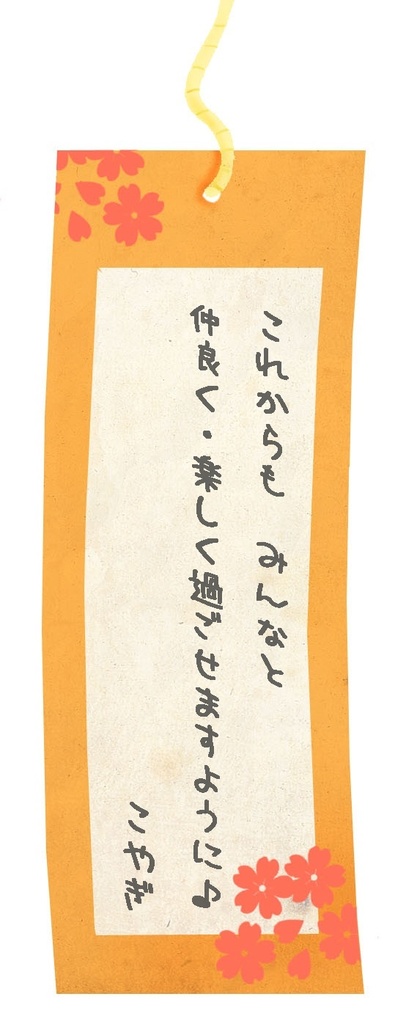 これからも みんなと
仲良く・楽しく過ごせますように♪
こやぎ